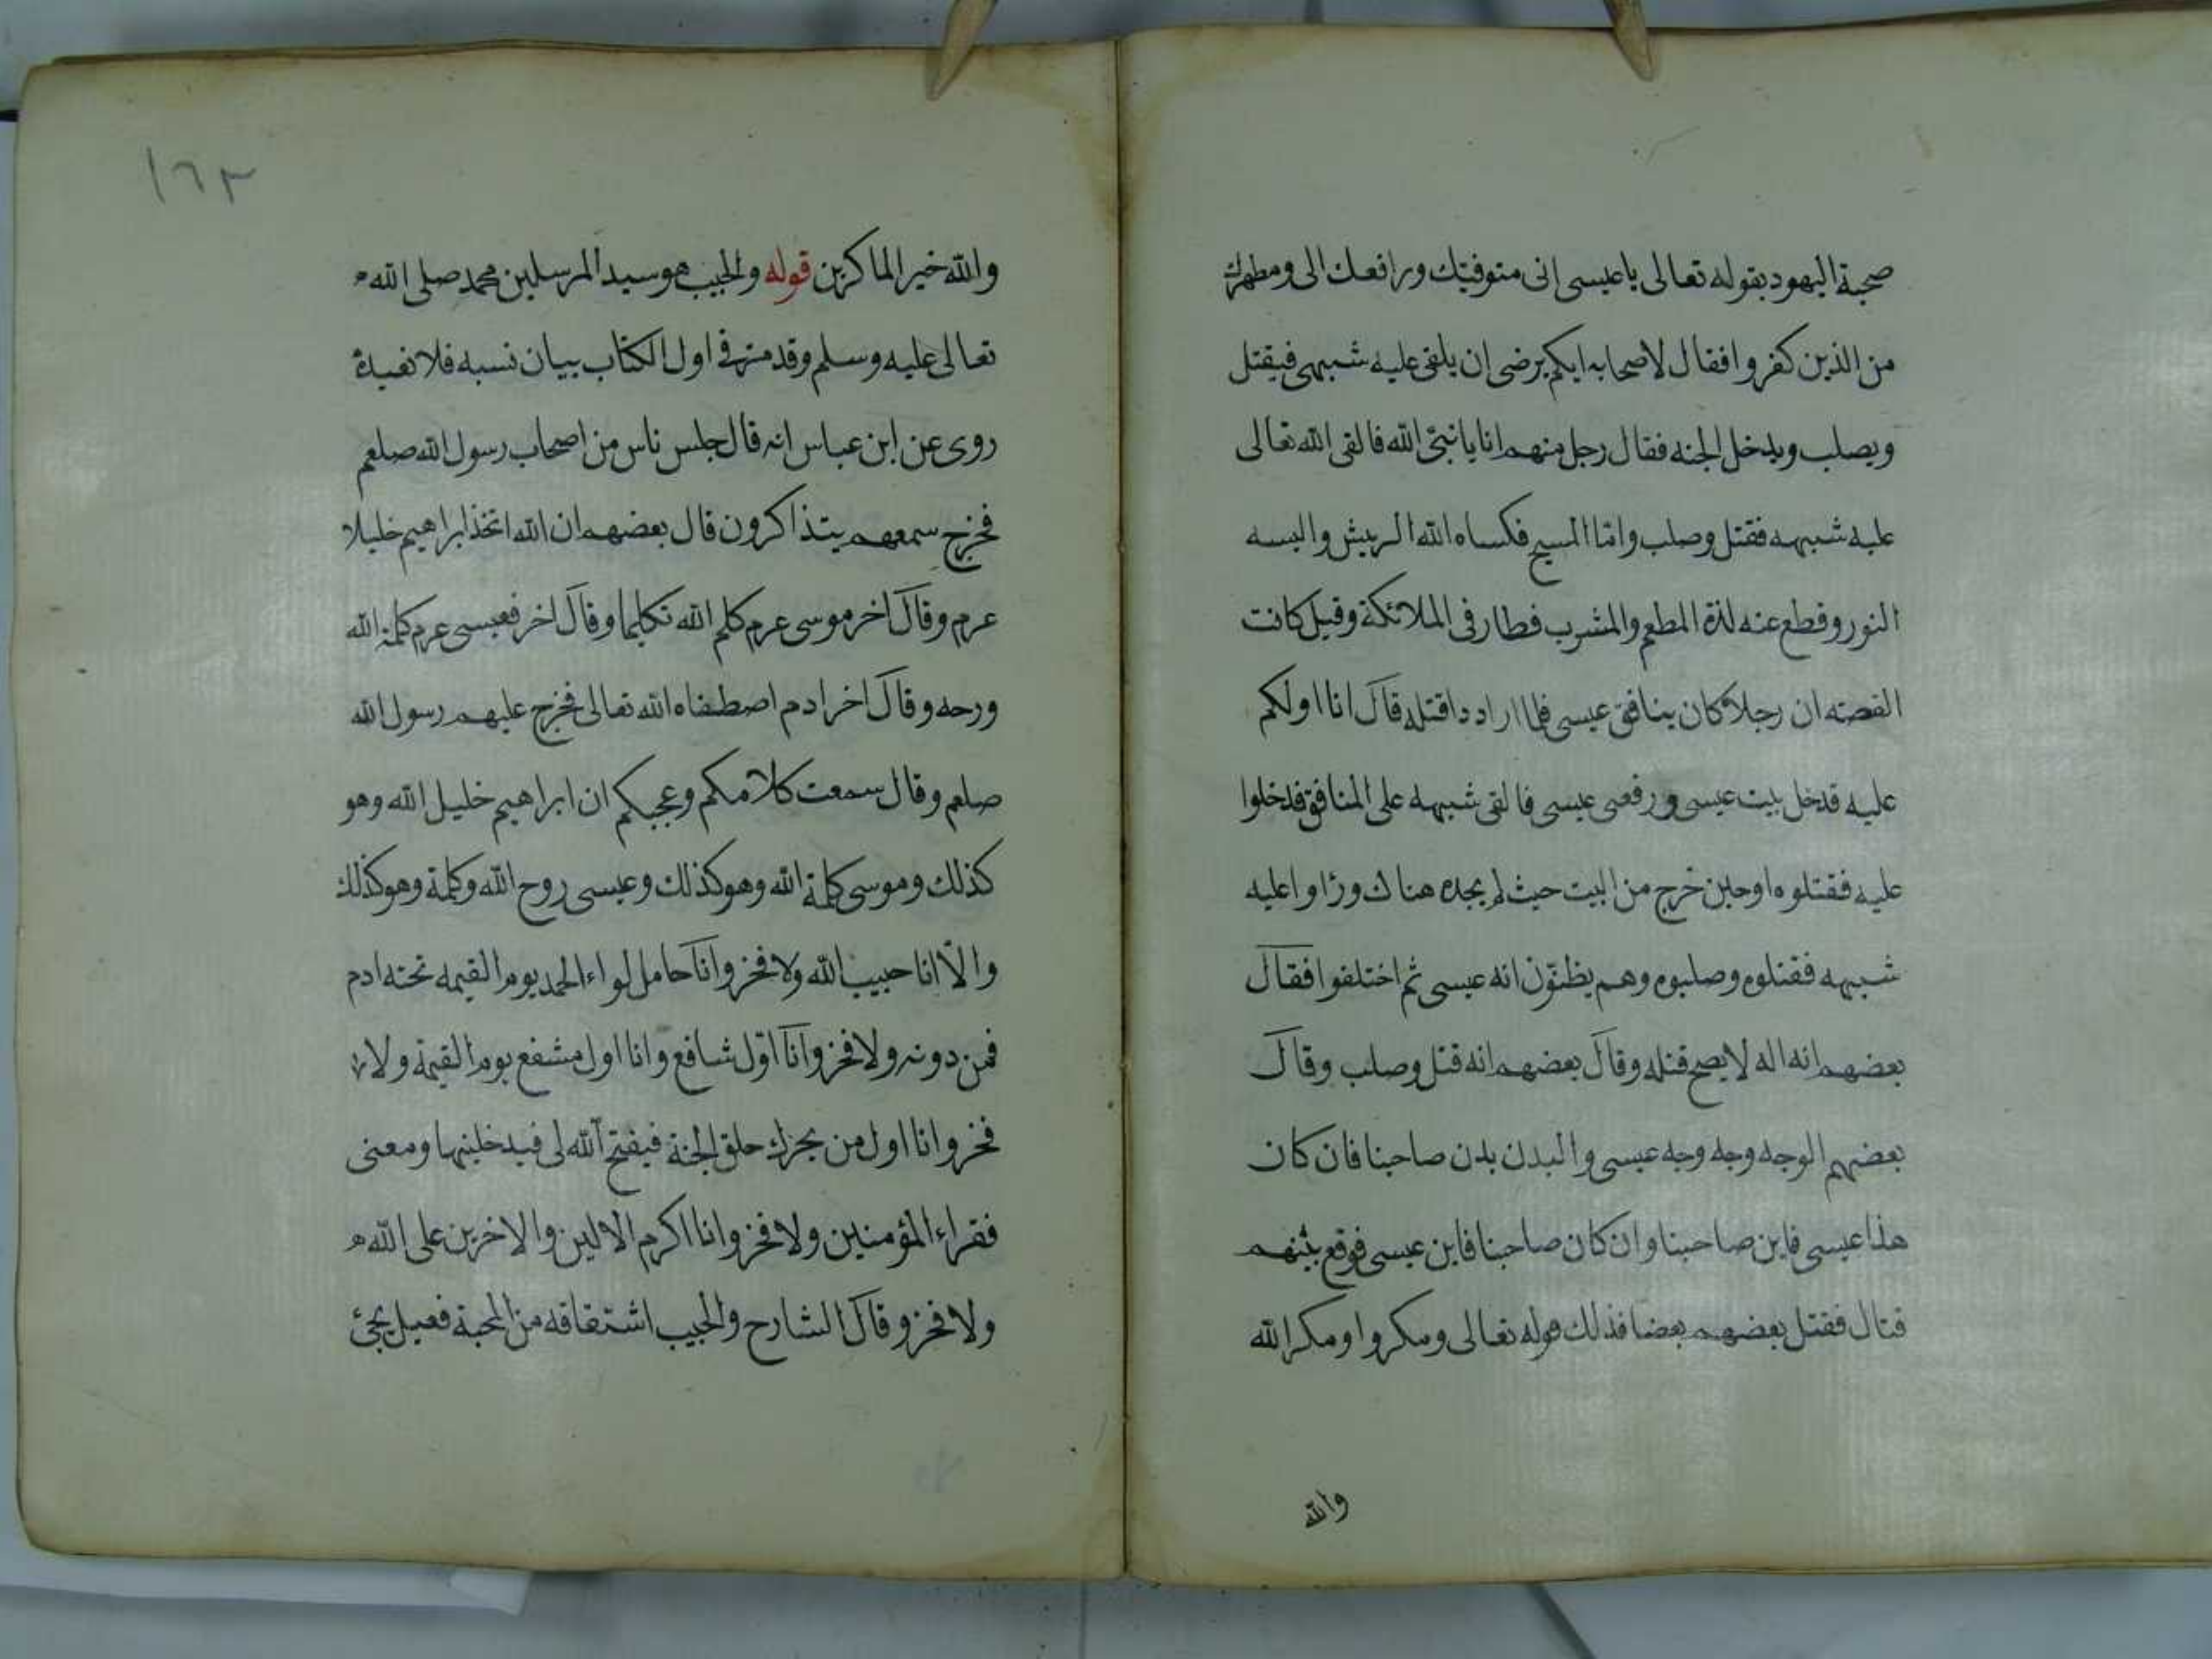 صحبة اليهود بقوله تعالى يا عيسى انى متوفيك ورافعك الى ومطهرك
من الذين كفروا فقال لاصحابه ايكم يرضى ان يلقى عليه شبهى فيقتل
ويصلب ويدخل الجنه فقال رجل منهم انا يا نبىّ الله فالقى الله تعالى
عليه شبهه فقتل وصلب وامّا المسيح فكساه الله الريش والبسه
النور وقطع عنه لذة المطعم والمشرب فطار فى الملائكة وقيل كانت
القصته ان رجلا كان ينافق عيسى فلما ارادد اقتله قال انا اولكم
عليه فدخل بيت عيسى ورفعى عيسى فالقى شبهه على المنافق فدخلوا
عليه فقتلوه اوحين خرج من البيت حيث لم يجده هناك وراوا عليه
شبهه فقتلوه وصلبوه وهم يظنّون انه عيسى ثم اختلفوا فقال
بعضهم انه اله لا يصح قتله وقال بعضهم انه قتل وصلب وقال
بعضهم الوجه وجه وجه عيسى والبدن بدن صاحبنا فان كان
هذا عيسى فاين صاحبنا وان كان صاحبنا فاين عيسى فوقع بينهم
قتال فقتل بعضهم بعضا فذلك قوله تعالى ومكروا ومكر الله
والله
١٦٣
والله خير الماكرين قوله والحبيب هو سيد المرسلين محمد صلى الله
تعالى عليه وسلم وقد مر فى اول الكتاب بيان نسبه فلا نعيده
روى عن ابن عباس انه قال جلس ناس من اصحاب رسول الله صلعم
فخرج سمعهم يتذاكرون قال بعضهم ان الله اتخذ ابراهيم خليلا
عرم وقال اخر موسى عرم كلم الله تكليما وقال اخر فعيسى عرم كلمة الله
ورحه وقال اخر ادم اصطفاه الله تعالى فخرج عليهم رسول الله
صلعم وقال سمعت كلامكم وعجبكم ان ابراهيم خليل الله وهو
كذلك وموسى كلمة الله وهو كذلك وعيسى روح الله وكلمة وهو كذلك
والاّ انا حبيب الله ولا فخر وانا حامل لواء الحمد يوم القيمه تحته ادم
فمن دونه ولا فخر وانا اوّل شافع وانا اول مشفع يوم القيمة ولا
فخر وانا اول من يحرك حلق الجنة فيفتح الله لى فيدخلنيها ومعنى
فقراء المؤمنين ولا فخر وانا اكرم الالين والاخرين على الله
ولا فخر وقال الشارح والحبيب اشتقاقه من المحبة فعيل يجئ